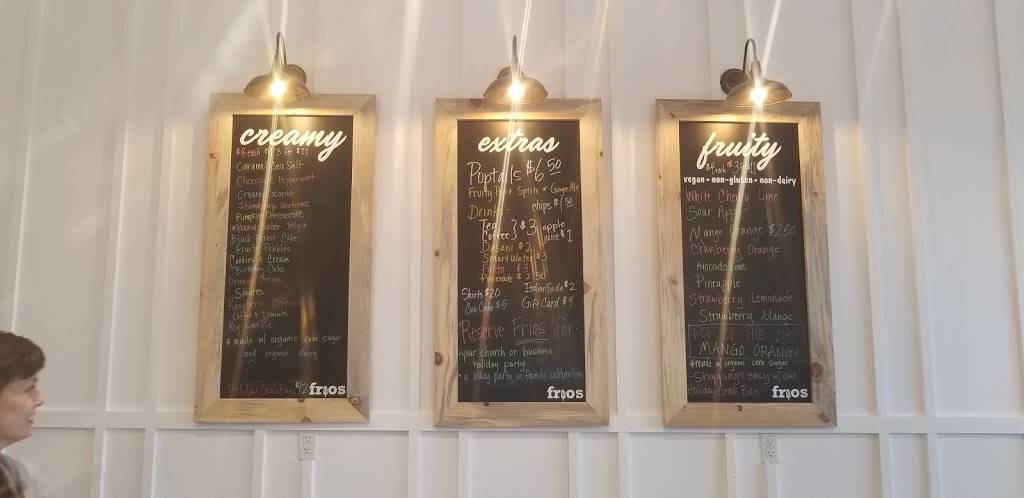 creamy
$4 each or 3 for $11
Caramel Sea Salt
Chocolate Peppermint
Creamy Coconut
Strawberry Shortcake
Pumpkin Cheesecake
*Peanut Butter Jelly*
Black Forest Cake
Fruity Pebbles
Cookies & Cream
Birthday Cake
Orange Cream
S'mores
Raspberry Cheesecake
Coffee & Donuts
Key Lime Pie
* made w/ organic cane sugar
and organic dairy
$12
frios
extras
Poptails $6.50
Fruity Pop + Sprite or Ginger Ale
Drinks
chips $1.50
Tea
Coffee } $3
apple
juice $1
Dasani $2
Smart Water $3
Fanta $3
Powerade $2.50
Shirts $20
Italian Soda $2
Can Cooler $5
Gift Card $4
Reserve Frios for:
• your church or business
holiday party
• a bday party or family celebration
frios
fruity
$4 each or 3 for $11
vegan • non-gluten • non-dairy
White Cherry Lime
Sour Apple
Mango Orange $2.50
Cranberry Orange
Avocado Lime
Pineapple
Strawberry Lemonade
Strawberry Mango
POP OF THE DAY
MANGO ORANGE
*made w/ organic cane sugar
Shopping's easy w/ our
Holiday Grab Bags
frios